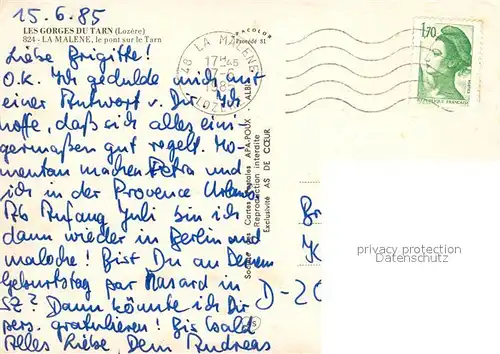 15.6.85
LES GORGES DU TARN (Lozère)
824 - LA MALÈNE, le pont sur le Tarn
Liebe Brigitte!
O.K. Ich gedulde mich mit
einer Antwort v. Dir. Ich
hoffe, daß sich alles eini-
germaßen gut regelt. Mo-
mentan machen Petra und
ich in der Provence Urlaub.
Ab Anfang Juli bin ich
dann wieder in Berlin und
maloche! Bist Du an Deinem
Geburtstag par hasard in
SZ? Dann könnte ich Dir
pers. gratulieren! Bis bald
Alles Liebe, Dein Andreas
Procédé
48 LA MALENE
17H45
1985
LOZERE
Société des Cartes Postales APA-POUX - ALBI
Reproduction interdite
Exclusivité AS DE CŒUR
1,70
REPUBLIQUE FRANÇAISE
Br
D-20
privacy protection
Datenschutz